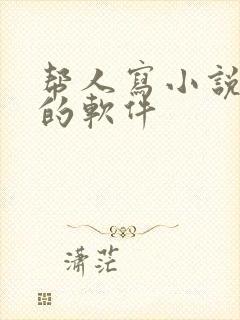 帮人寫小說
的軟件
潇茫